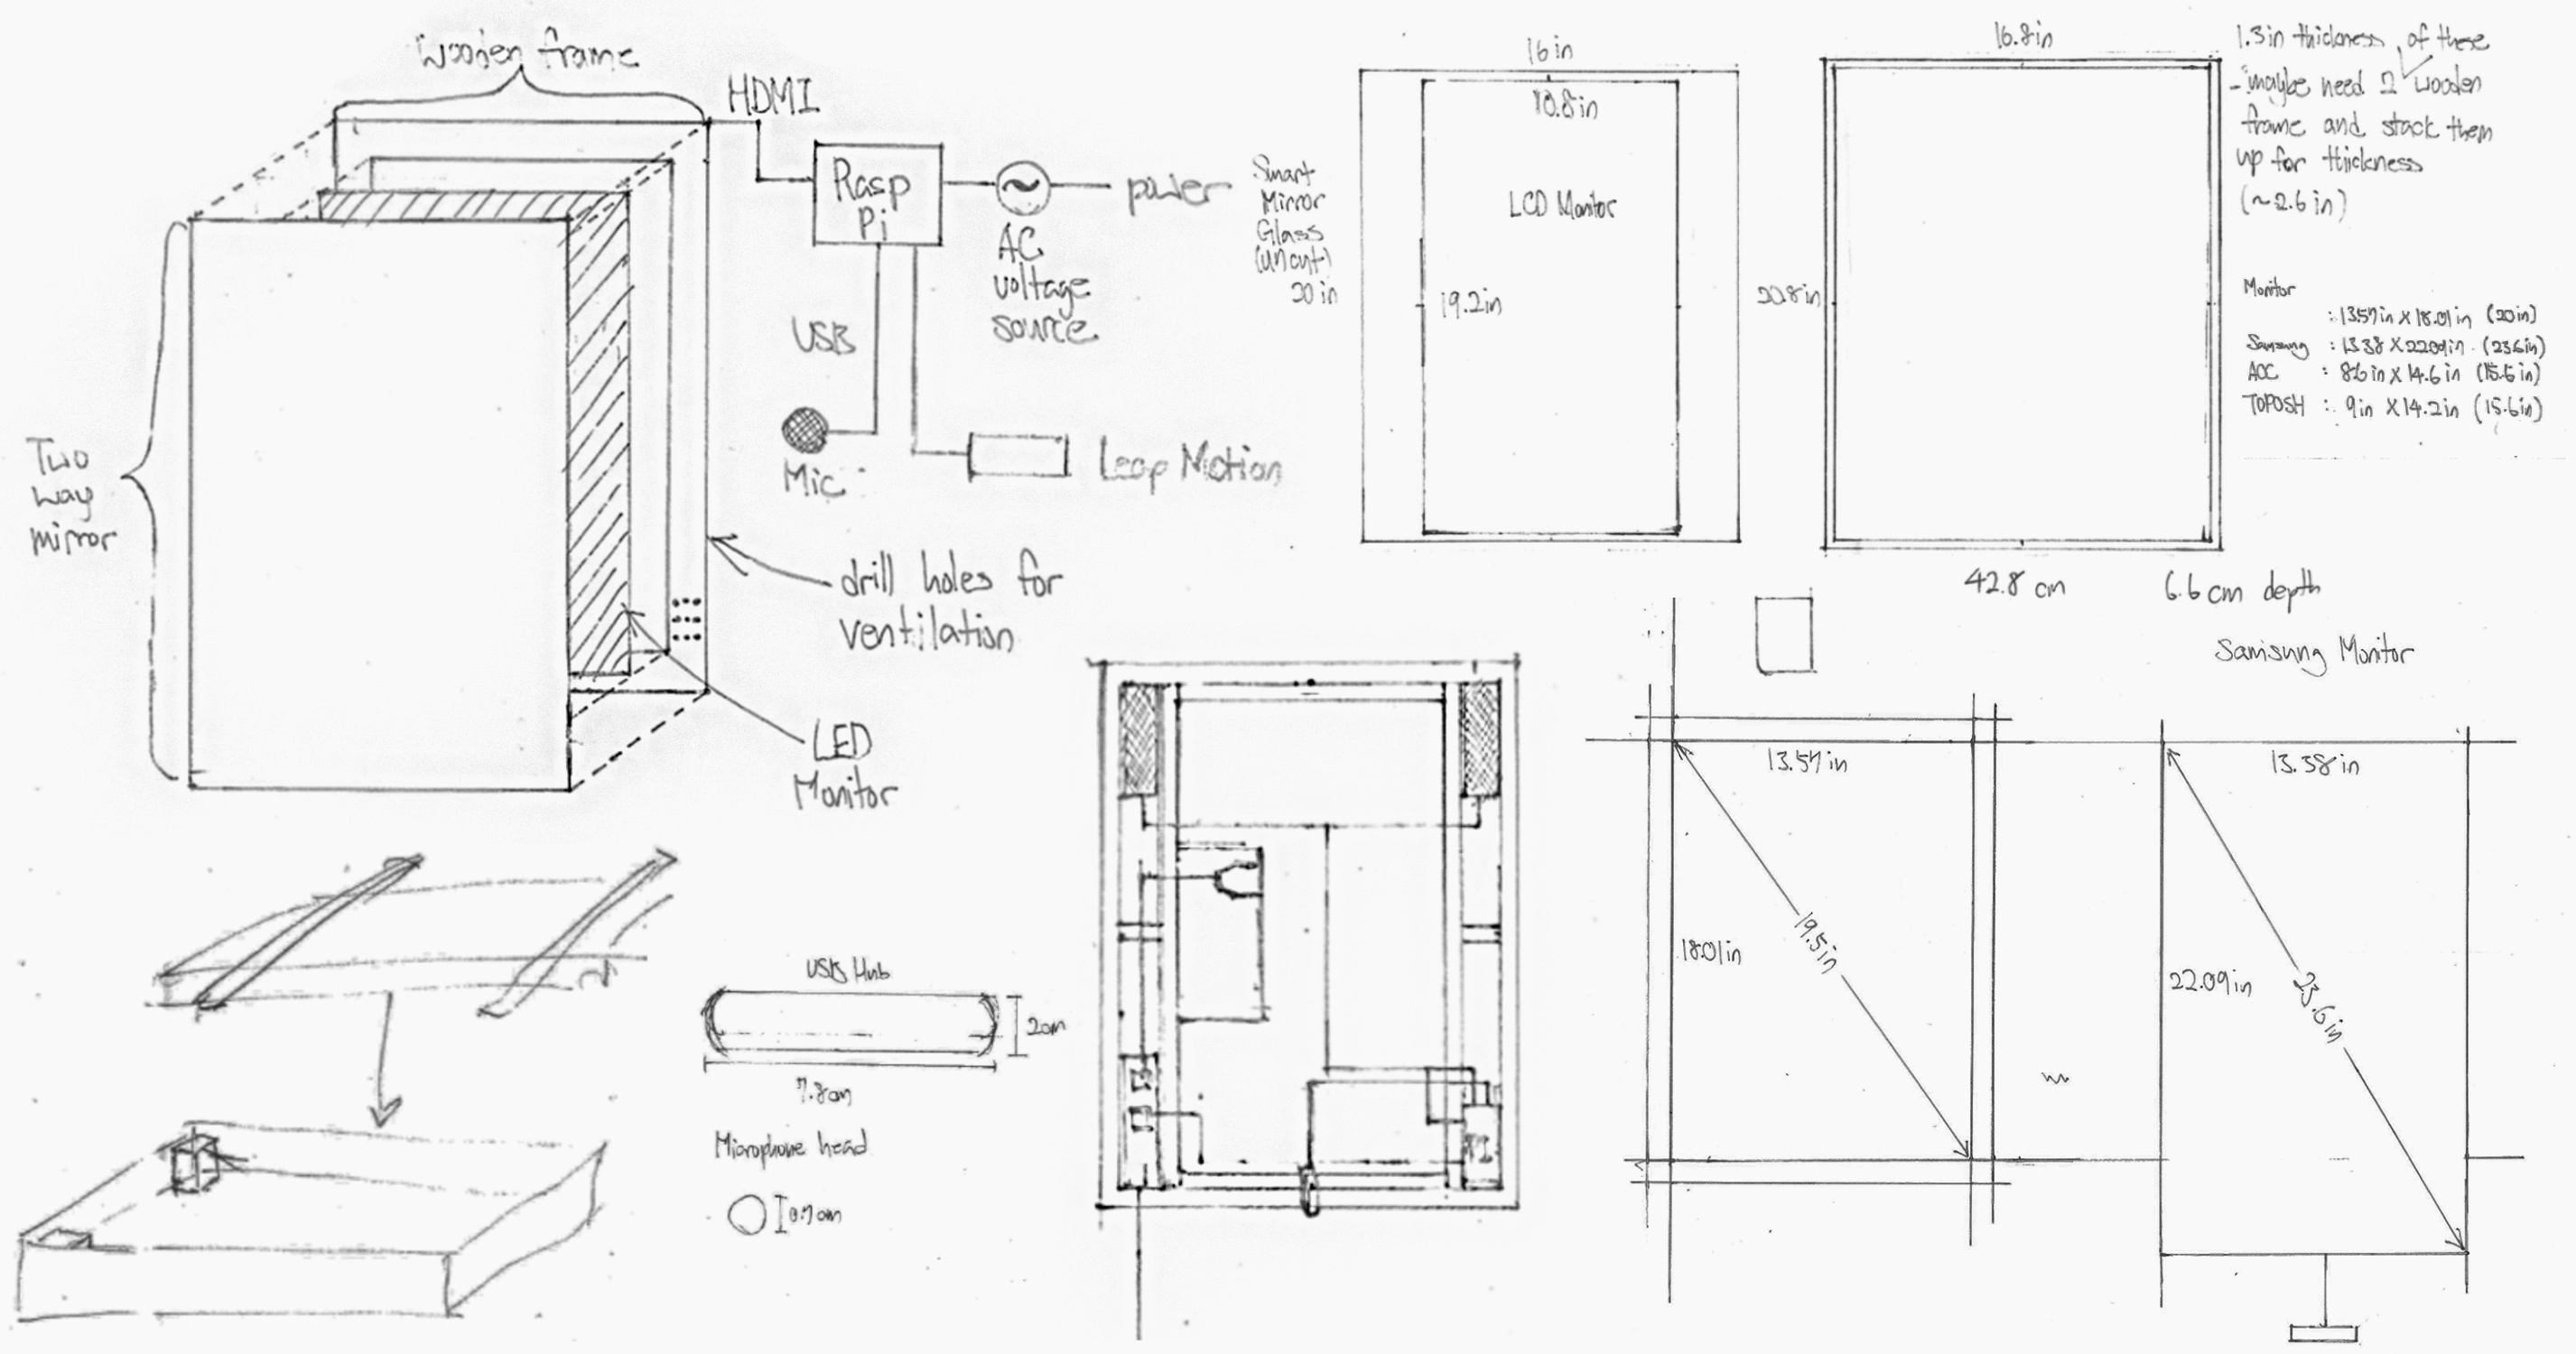 Wooden frame
HDMI
Rasp
Pi
power
AC
voltage
source
USB
Mic
Leap Motion
Two
way
mirror
drill holes for
ventilation
LED
Monitor
16 in
10.8in
Smart
Mirror
Glass
(uncut)
20 in
LCD Monitor
19.2in
16.8in
20.8in
1.3in thickness of these
- maybe need 2 wooden
frame and stack them
up for thickness
(~2.6in)
Monitor
: 13.57in X 18.01in (20in)
Samsung : 13.38 X 22.09in (23.6in)
AOC : 8.6in X 14.6in (15.6in)
TOPOSH : 9in X 14.2in (15.6in)
42.8 cm
6.6 cm depth
Samsung Monitor
13.57in
19.5in
18.01in
13.38in
22.09in
23.6in
USB Hub
2cm
7.8cm
Microphone head
0.7cm